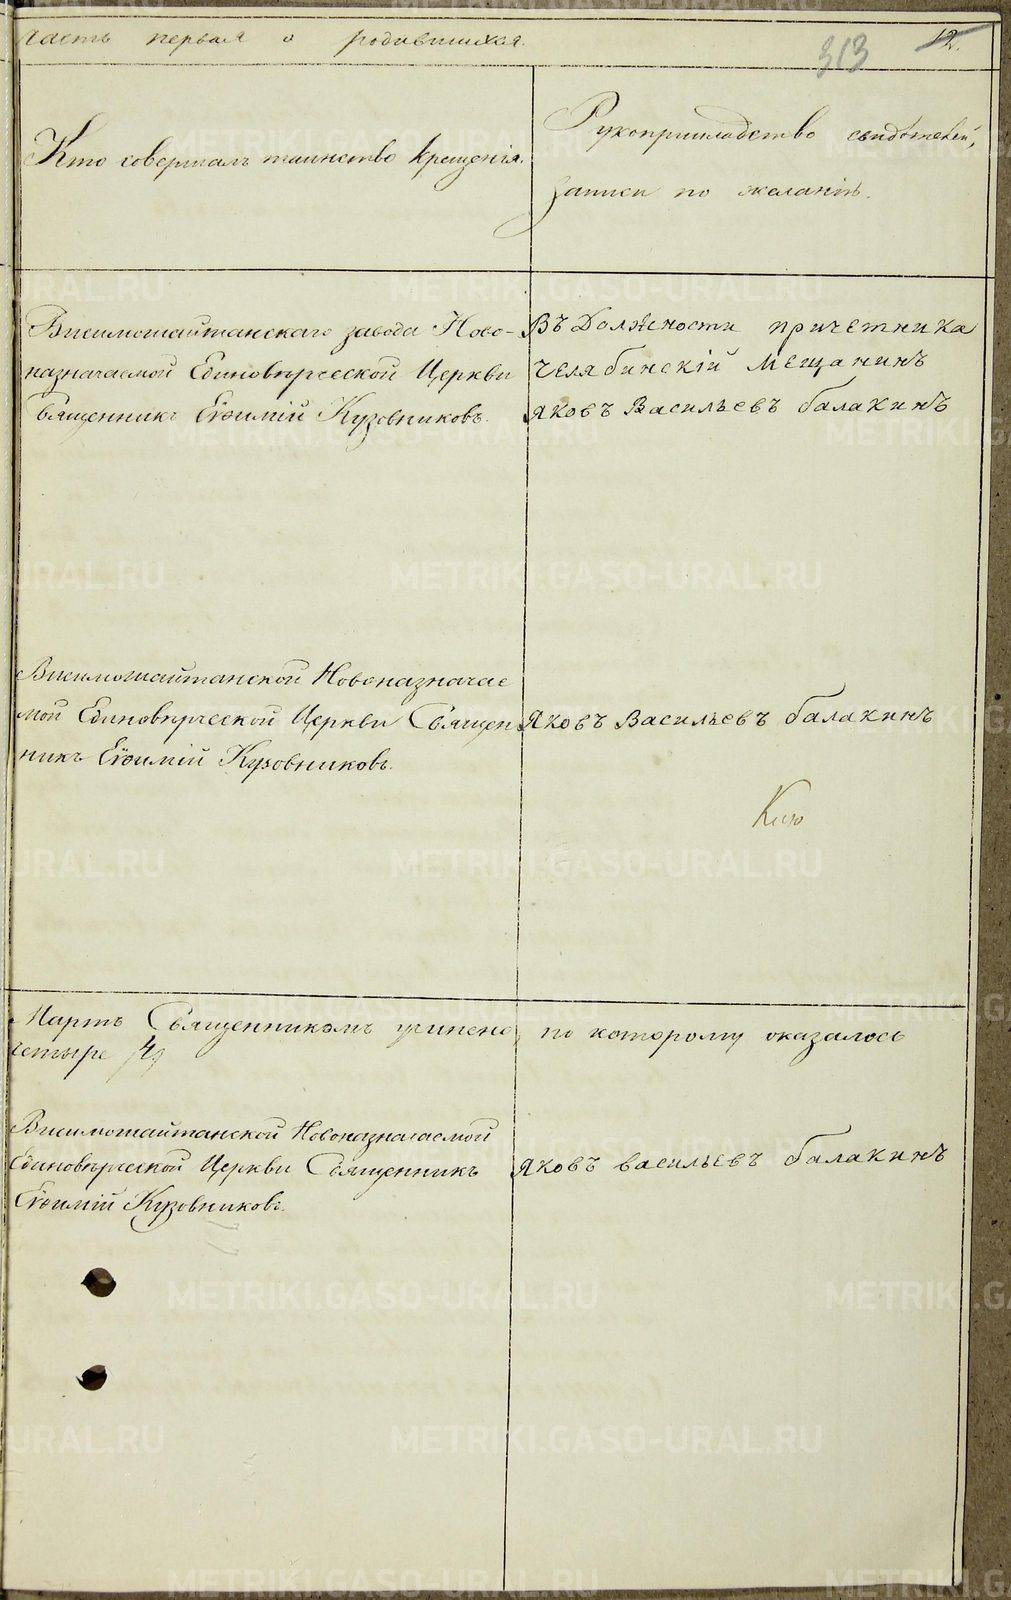 часть первая о родившихся.
313
12.
Кто совершалъ таинство крещенія.
Рукоприкладство свидѣтелей,
записи по желанію.
Висимошайтанскаго завода Ново-
назначаемой Единовѣрческой Церкви
Священникъ Еѳимій Кузовниковъ.
Въ Должности причетника
челябинскій мещанинъ
яковъ Васильевъ балакинъ
Висимошайтанской Новоназначае
мой Единовѣрческой Церкви Священ
никъ Еѳимій Кузовниковъ.
Яковъ Васильевъ балакинъ
Мартъ Священникомъ учинено, по которому оказалось
четыре /4/
Висимошайтанской Новоназначаемой
Единовѣрческой Церкви Священникъ
Еѳимій Кузовниковъ.
яковъ васильевъ балакинъ
METRIKI.GASO-URAL.RU